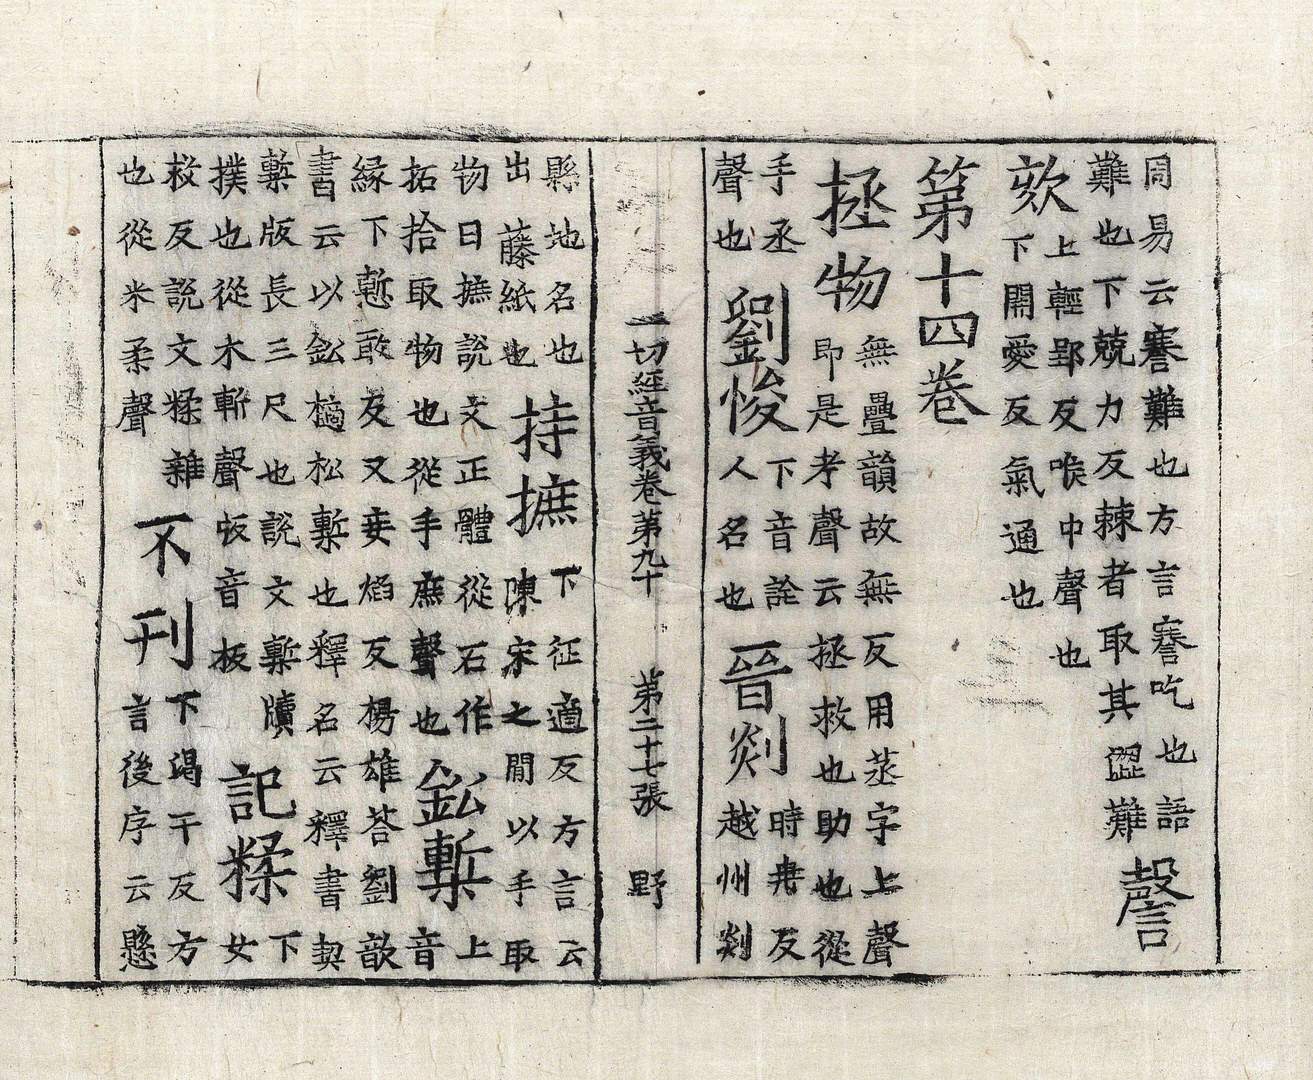 周易云謇難也方言謇吃也語
難也下兢力反棘者取其澀難 謦
欬 上輕郢反喉中聲也
下開愛反氣通也
第十四卷
拯物 無疊韻故無反用蒸字上聲
即是孝聲云拯救也助也從
手丞
聲也 劉悛 下音詮
人名也 晉剡 時冉反
越州剡
一切經音義卷第九十 第二十七張 野
縣地名也
出藤紙也 持摭 下征適反方言云
陳宋之閒以手取
物曰摭說文正體從石作
拓拾取物也從手庶聲也 鈆槧 上
音
緣下慙敢反又妾焰反楊雄荅劉歆
書云以鈆擿松槧也釋名云釋書契
槧版長三尺也說文槧牘
撲也從木斬聲㽹音板 記糅 下
女
救反說文糅雜
也從米柔聲 不刊 下渴干反方
言後序云懸